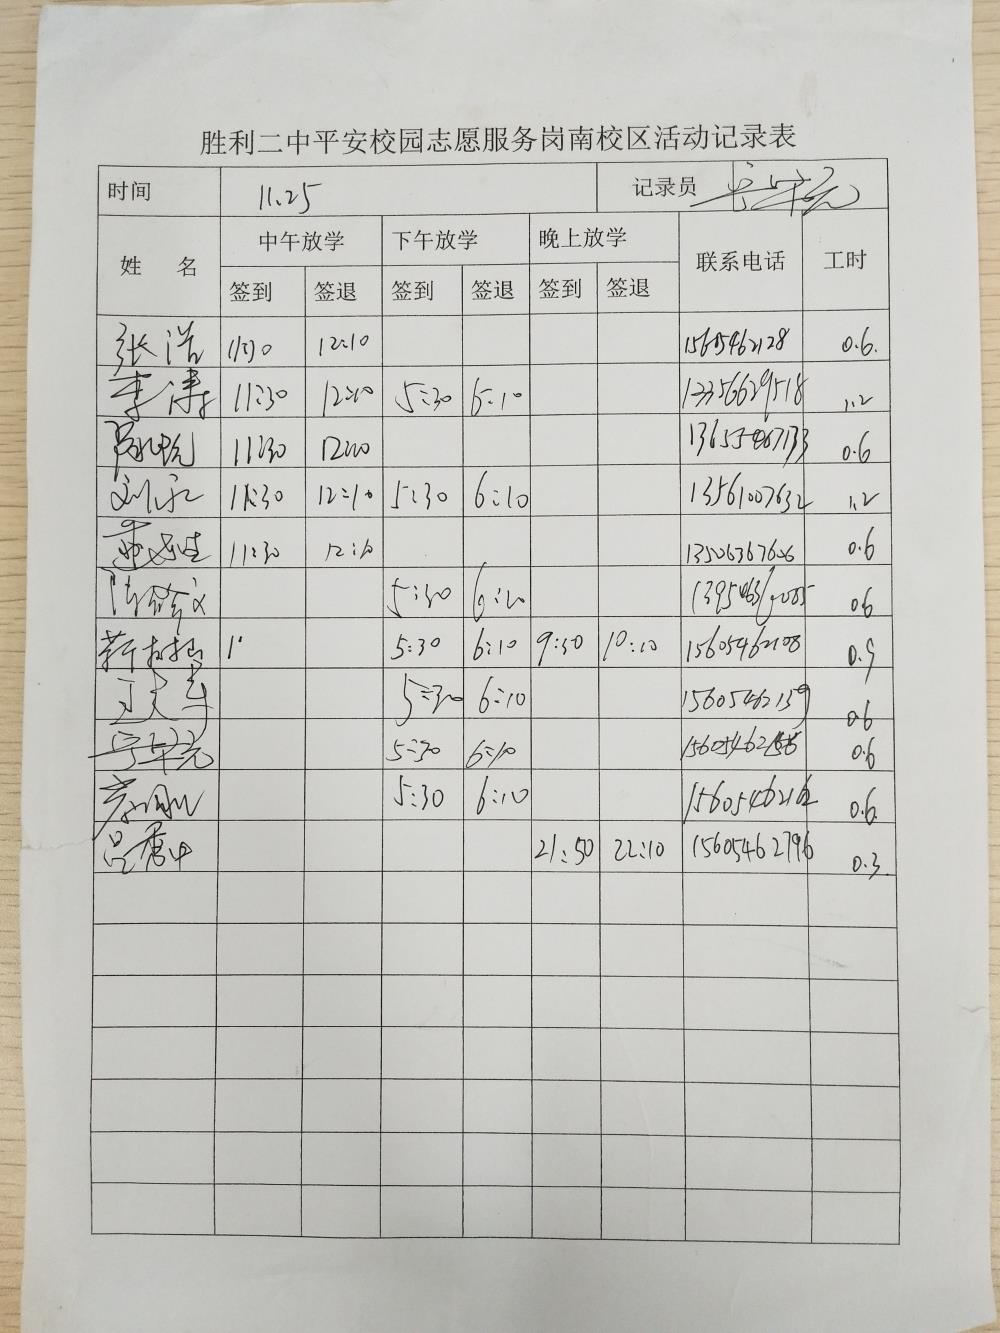 胜利二中平安校园志愿服务岗南校区活动记录表
时间 11.25 记录员
姓 名 中午放学 下午放学 晚上放学 联系电话 工时
签到 签退 签到 签退 签到 签退
张浩 12:10 15605462128 0.6
李涛 11:30 12:10 5:30 6:10 13356629518 1.2
11:30 12:10 0.6
刘永 11:30 12:10 5:30 6:10 13561007632 1.2
11:30 12:10 13506367606 0.6
5:30 6:10 0.6
5:30 6:10 9:30 10:10 15605462108 0.9
5:30 6:10 15605462139 0.6
5:30 6:10 0.6
5:30 6:10 15605462162 0.6
吕秀中 21:50 22:10 15605462796 0.3